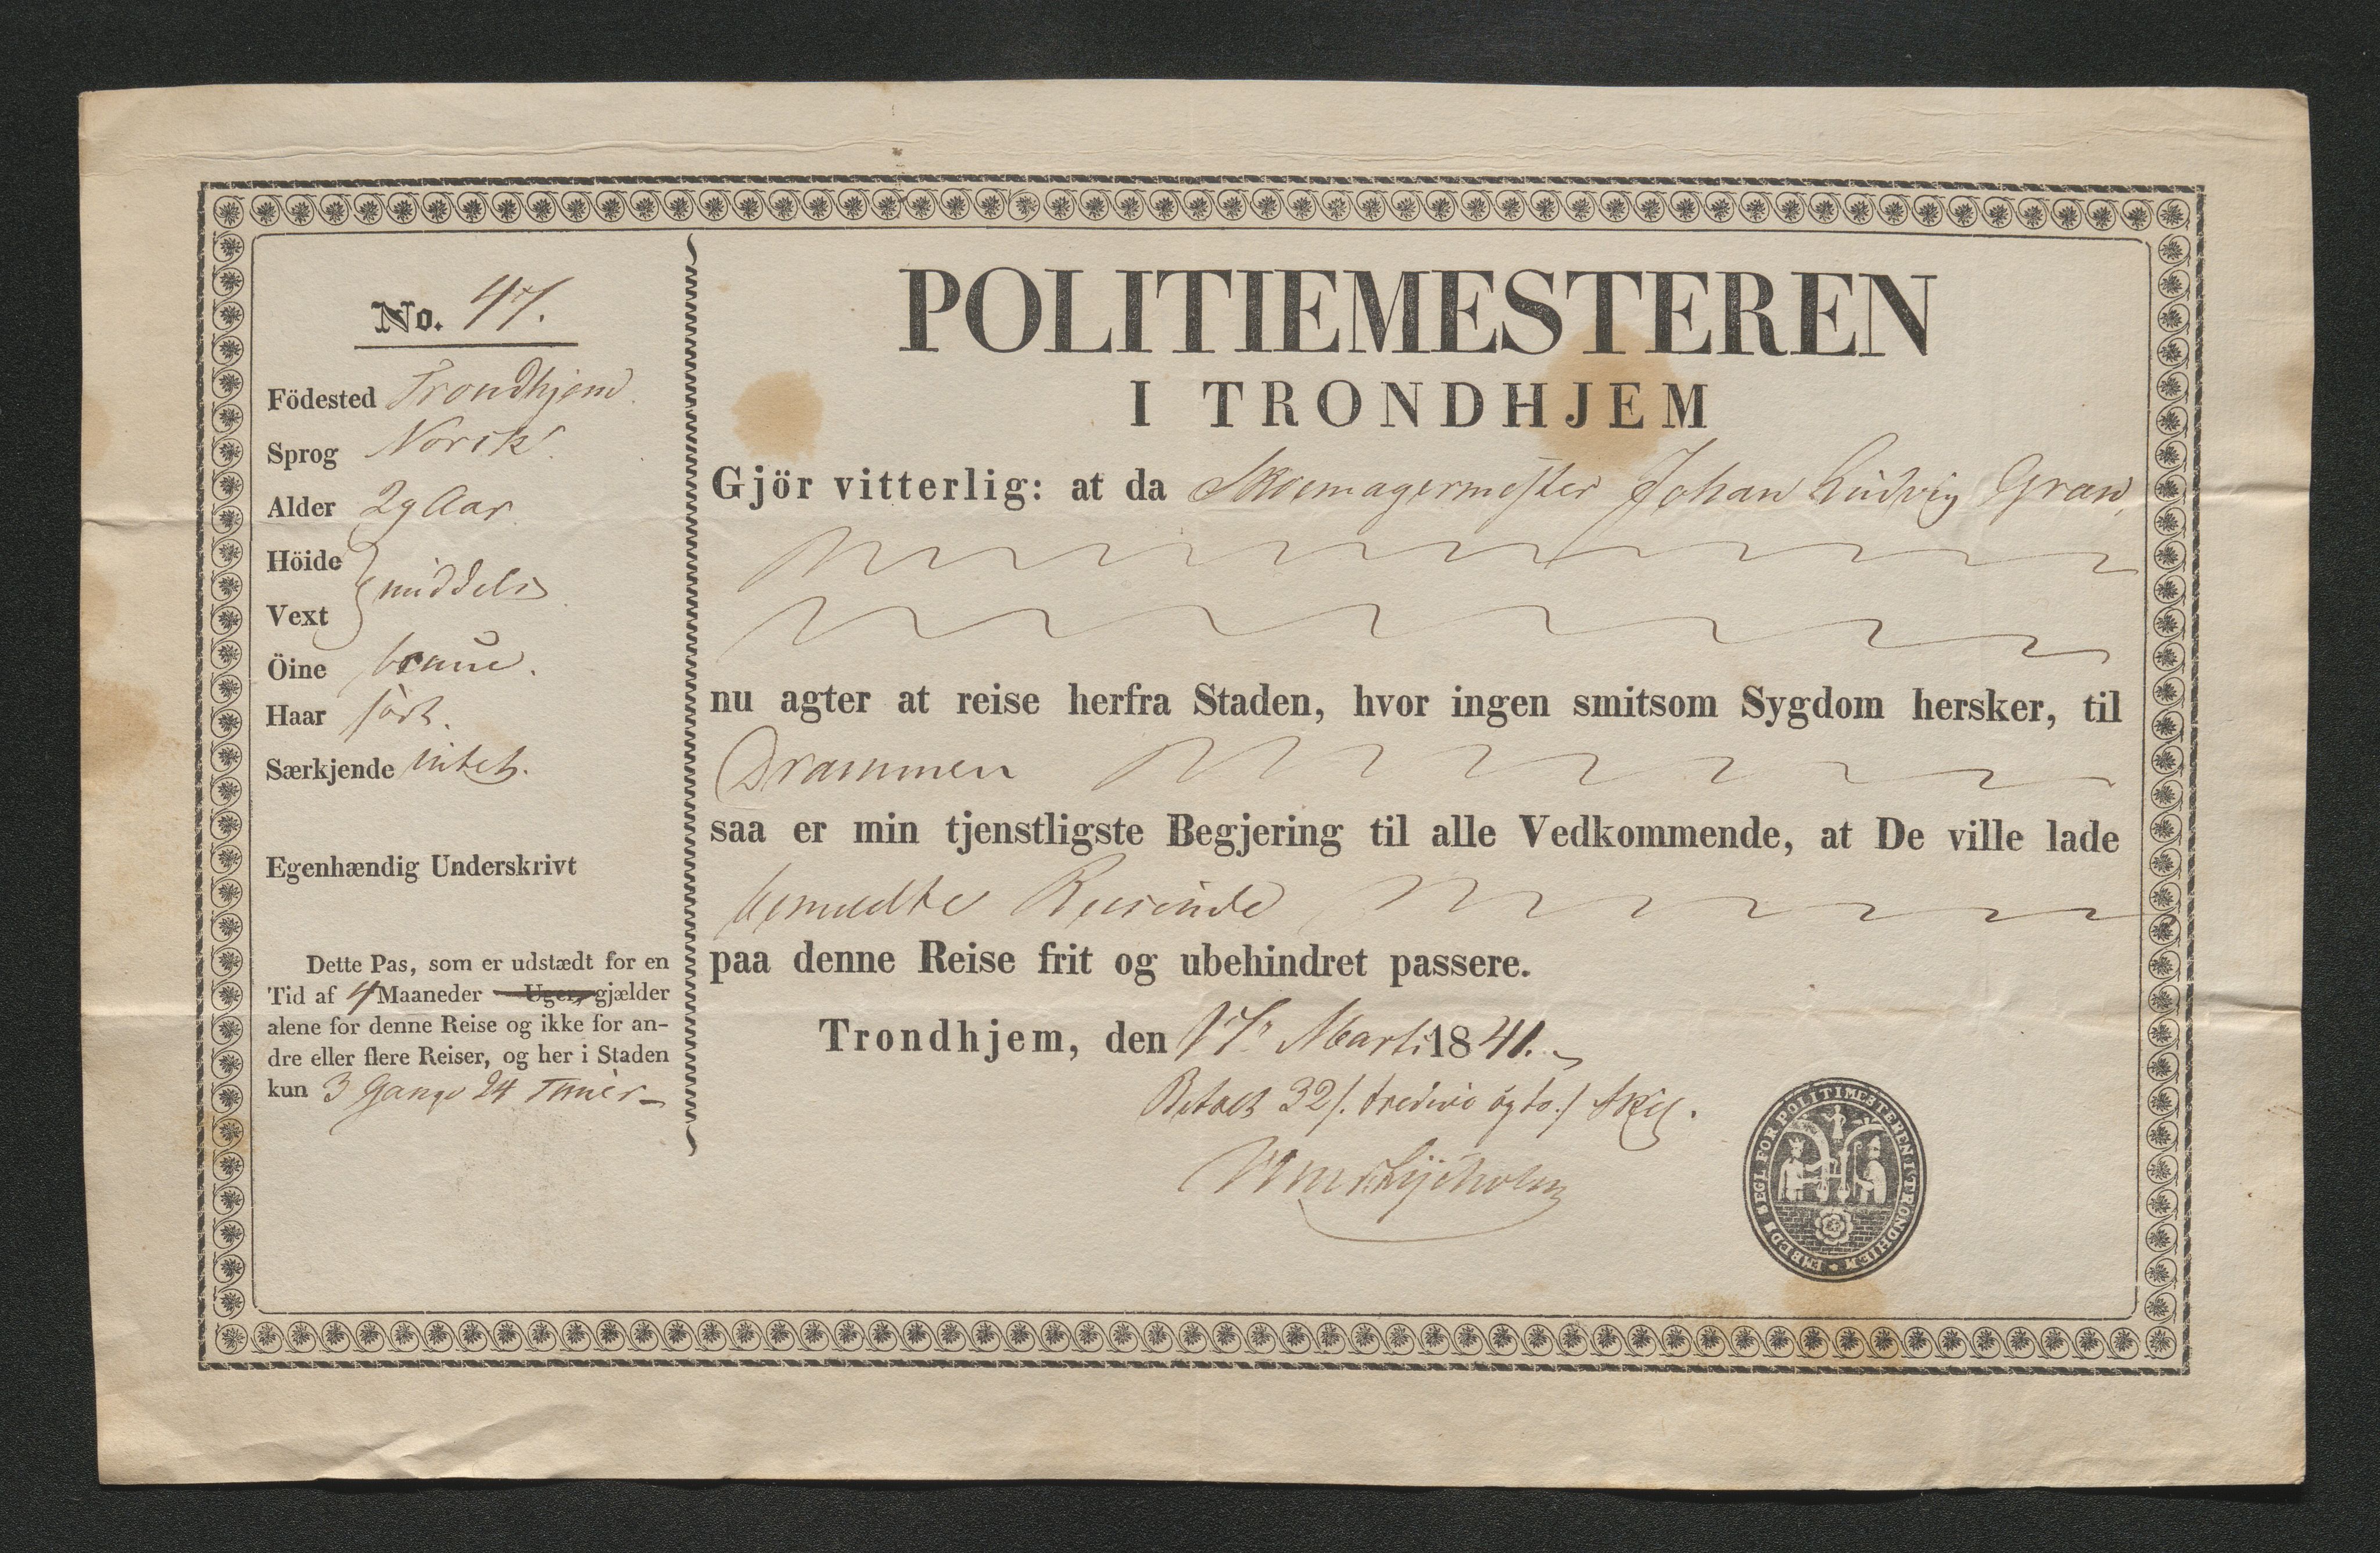 No. 47.
Födested Trondhjem.
Sprog Norsk.
Alder 29 Aar
Höide
middels
Vext
Öine brune.
Haar sort.
Særkjende intet.
Egenhændig Underskrivt
Dette Pas, som er udstædt for en
Tid af 4 Maaneder Uger, gjælder
alene for denne Reise og ikke for an-
dre eller flere Reiser, og her i Staden
kun 3 Gange 24 Timer
POLITIEMESTEREN
I TRONDHJEM
Gjör vitterlig: at da Skoemagermester Johan Ludvig Gran,
nu agter at reise herfra Staden, hvor ingen smitsom Sygdom hersker, til
Drammen
saa er min tjenstligste Begjering til alle Vedkommende, at De ville lade
bemeldte Reisende
paa denne Reise frit og ubehindret passere.
Trondhjem, den 17 Marti 1841.
Betalt 32 /. tredive og to ./ Skil.
EMBEDS SEGL FOR POLITIMESTEREN I TRONDHIEM